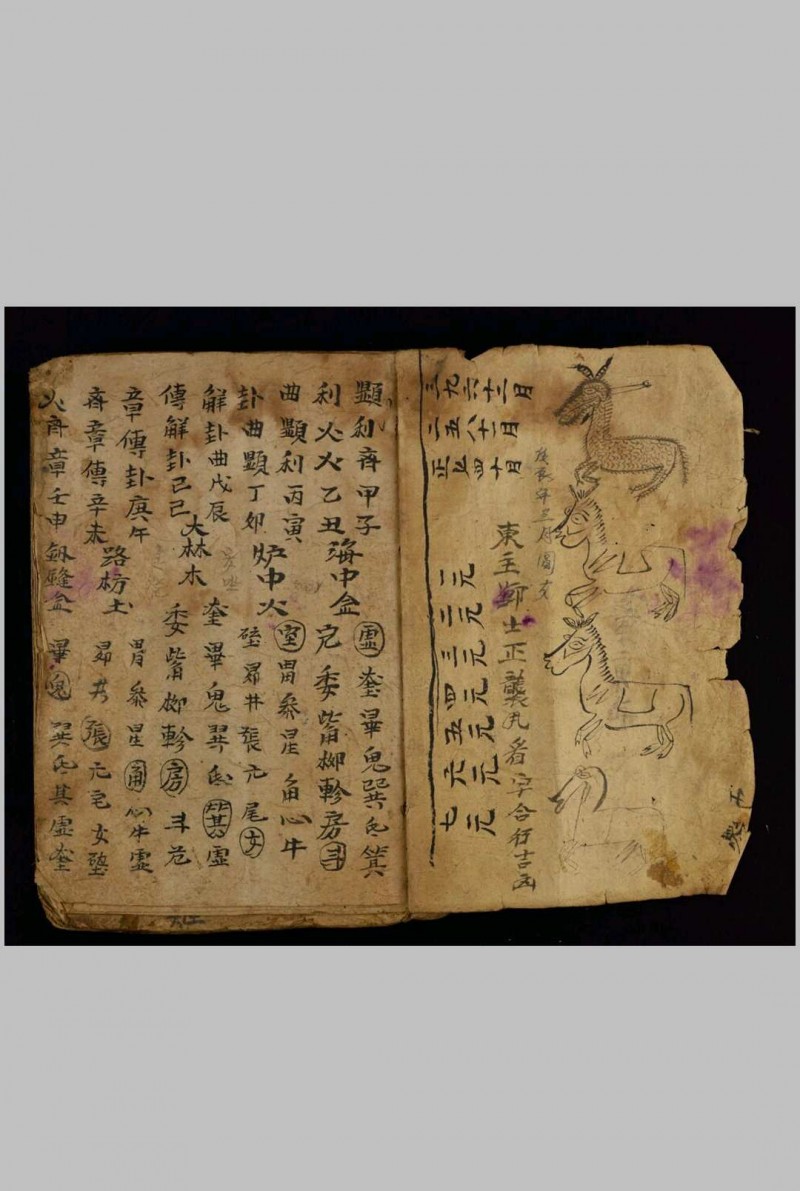 三九六十二月
二五八十一月
正七四十月
一元
二元
三元
四元
五元
六元
七元
顯利斉甲子 虛奎畢鬼巽氐箕
海中金
利火火乙丑 危委觜柳軫房斗
曲顯利丙寅 室胃參星角心牛
炉中火
卦曲顯丁卯 壁昴井張亢尾女
解卦曲戊辰 奎畢鬼巽氐箕虛
大林木
傳解卦己巳 委觜柳軫房斗危
章傳卦庚午 胃參星角心牛虛
路枋土
斉章傳辛未 昴井張亢宅女壁
火斉章壬申 釼鋒金 畢鬼巽氐其虛奎